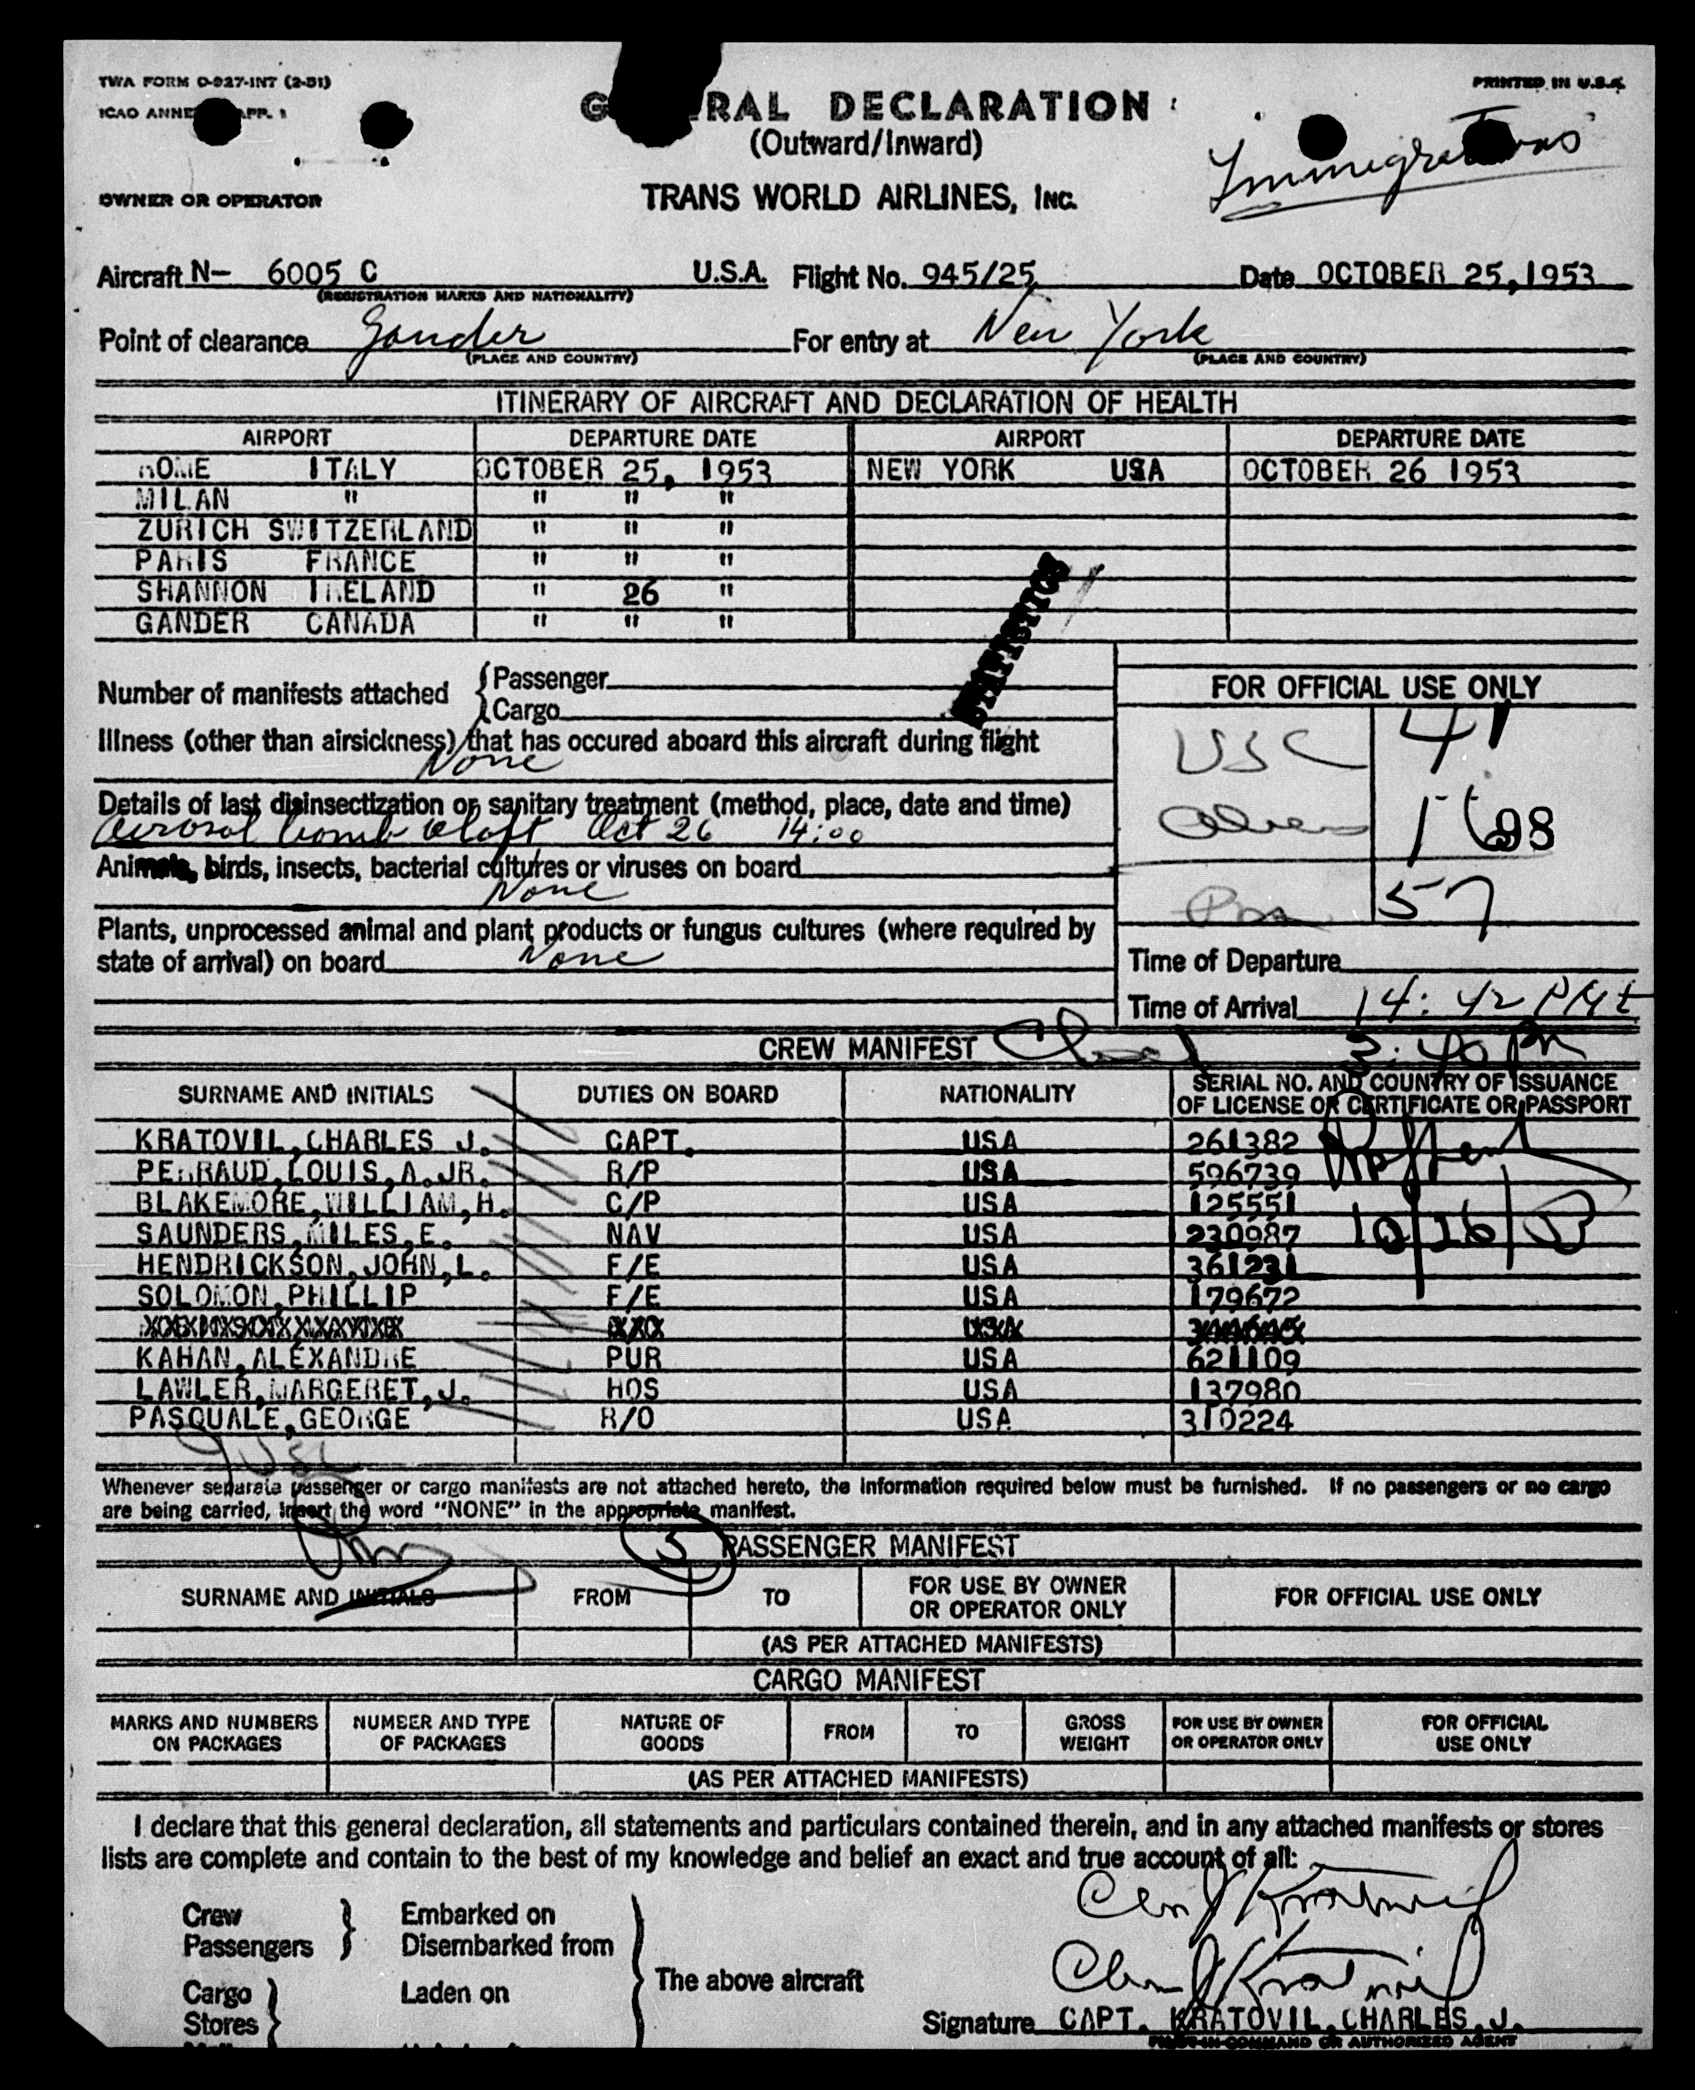 TWA FORM O-927-INT (2-51)
PRINTED IN U.S.A.
ICAO ANNE APP. 1
G RAL DECLARATION
(Outward/Inward)
Immigrations
OWNER OR OPERATOR
TRANS WORLD AIRLINES, INC.
Aircraft N- 6005 C U.S.A. Flight No. 945/25 Date OCTOBER 25, 1953
(REGISTRATION MARKS AND NATIONALITY)
Point of clearance Gander For entry at New York
(PLACE AND COUNTRY) (PLACE AND COUNTRY)
ITINERARY OF AIRCRAFT AND DECLARATION OF HEALTH
AIRPORT DEPARTURE DATE AIRPORT DEPARTURE DATE
ROME ITALY OCTOBER 25, 1953 NEW YORK USA OCTOBER 26 1953
MILAN " " " "
ZURICH SWITZERLAND " " "
PARIS FRANCE " " "
SHANNON IRELAND " 26 "
GANDER CANADA " " "
STATISTICS
Number of manifests attached
Passenger
Cargo
FOR OFFICIAL USE ONLY
Illness (other than airsickness) that has occured aboard this aircraft during flight
None
USC 41
Details of last disinsectization or sanitary treatment (method, place, date and time)
Aerosol bomb aloft Oct 26 14:00
Aliens 16 98
Animals, birds, insects, bacterial cultures or viruses on board
None
Pax 57
Plants, unprocessed animal and plant products or fungus cultures (where required by
state of arrival) on board None
Time of Departure
Time of Arrival 14:42
CREW MANIFEST
3:40 Pm
SURNAME AND INITIALS DUTIES ON BOARD NATIONALITY SERIAL NO. AND COUNTRY OF ISSUANCE
OF LICENSE OR CERTIFICATE OR PASSPORT
KRATOVIL, CHARLES J. CAPT. USA 261382
PERRAUD, LOUIS, A. JR. R/P USA 596739
BLAKEMORE, WILLIAM, H. C/P USA 125551
SAUNDERS, MILES, E. NAV USA 230987
10/26/53
HENDRICKSON, JOHN, L. F/E USA 361231
SOLOMON, PHILLIP F/E USA 179672
KAHAN, ALEXANDRE PUR USA 621109
LAWLER, MARGERET, J. HOS USA 137980
PASQUALE, GEORGE R/O USA 310224
9 USC
Whenever separate passenger or cargo manifests are not attached hereto, the information required below must be furnished. If no passengers or no cargo
are being carried, insert the word "NONE" in the appropriate manifest.
5 PASSENGER MANIFEST
SURNAME AND INITIALS FROM TO FOR USE BY OWNER
OR OPERATOR ONLY FOR OFFICIAL USE ONLY
(AS PER ATTACHED MANIFESTS)
CARGO MANIFEST
MARKS AND NUMBERS
ON PACKAGES NUMBER AND TYPE
OF PACKAGES NATURE OF
GOODS FROM TO GROSS
WEIGHT FOR USE BY OWNER
OR OPERATOR ONLY FOR OFFICIAL
USE ONLY
(AS PER ATTACHED MANIFESTS)
I declare that this general declaration, all statements and particulars contained therein, and in any attached manifests or stores
lists are complete and contain to the best of my knowledge and belief an exact and true account of all:
Chas J Kratovil
Crew Embarked on
Passengers Disembarked from
Chas J Kratovil
The above aircraft
Cargo Laden on
Stores
Signature CAPT. KRATOVIL, CHARLES, J.
PILOT-IN-COMMAND OR AUTHORIZED AGENT